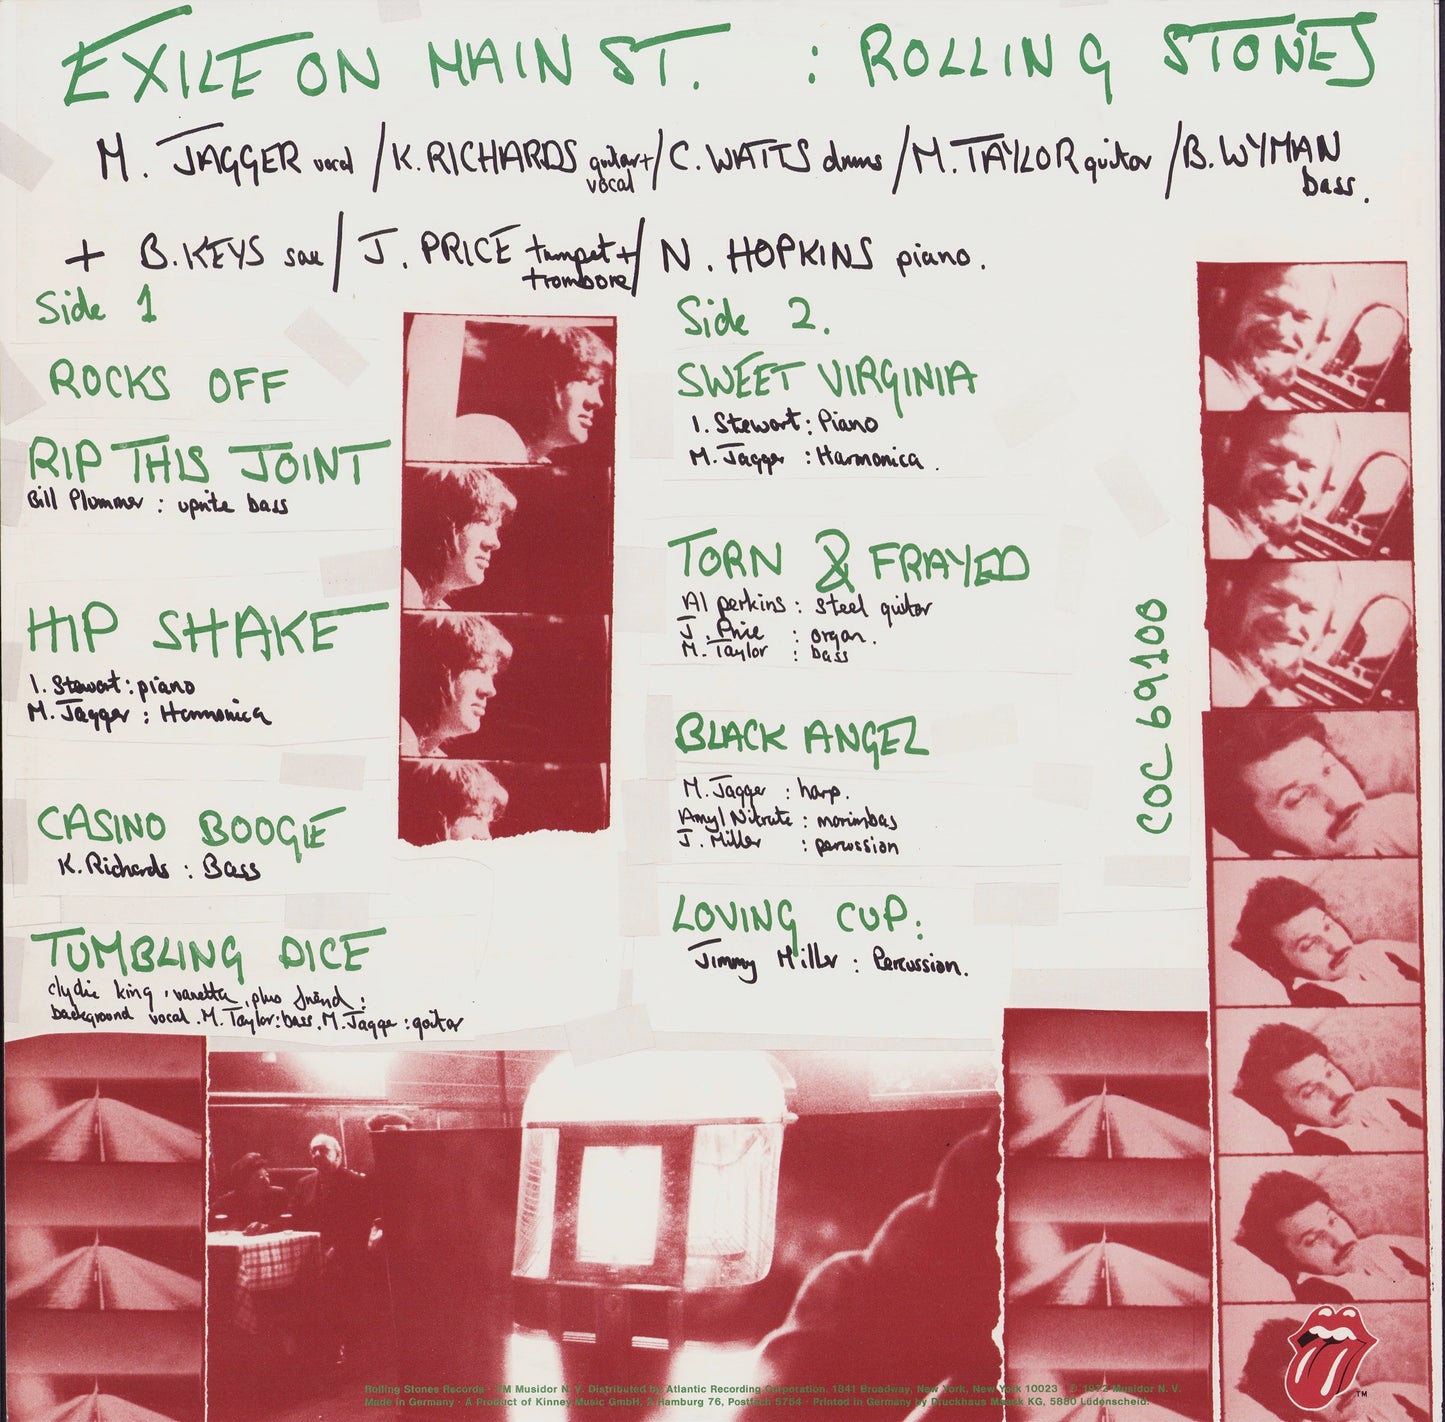 EXILE ON MAIN ST. : ROLLING STONES
M. JAGGER vocal / K. RICHARDS guitar + vocal / C. WATTS drums / M. TAYLOR guitar / B. WYMAN bass.
+ B. KEYS sax / J. PRICE trumpet + trombone / N. HOPKINS piano.
Side 1
ROCKS OFF
RIP THIS JOINT
Bill Plummer : uprite bass
HIP SHAKE
I. Stewart : piano
M. Jagger : Harmonica
CASINO BOOGIE
K. Richards : Bass
TUMBLING DICE
clydie king, vanetta, plus friend :
background vocal. M. Taylor : bass. M. Jagger : guitar
Side 2.
SWEET VIRGINIA
I. Stewart : Piano
M. Jagger : Harmonica.
TORN & FRAYED
Al perkins : steel guitar
J. Price : organ.
M. Taylor : bass
BLACK ANGEL
M. Jagger : harp.
Amyl Nitrate : marimbas
J. Miller : percussion
LOVING CUP.
Jimmy Miller : Percussion.
COC 69100
Rolling Stones Records · TM Musidor N. V. Distributed by Atlantic Recording Corporation. 1841 Broadway, New York, New York 10023 · © 1972 Musidor N. V.
Made in Germany · A Product of Kinney Music GmbH, 2 Hamburg 76, Postfach 5764 · Printed in Germany by Druckhaus Maack KG, 5880 Lüdenscheid.
TM